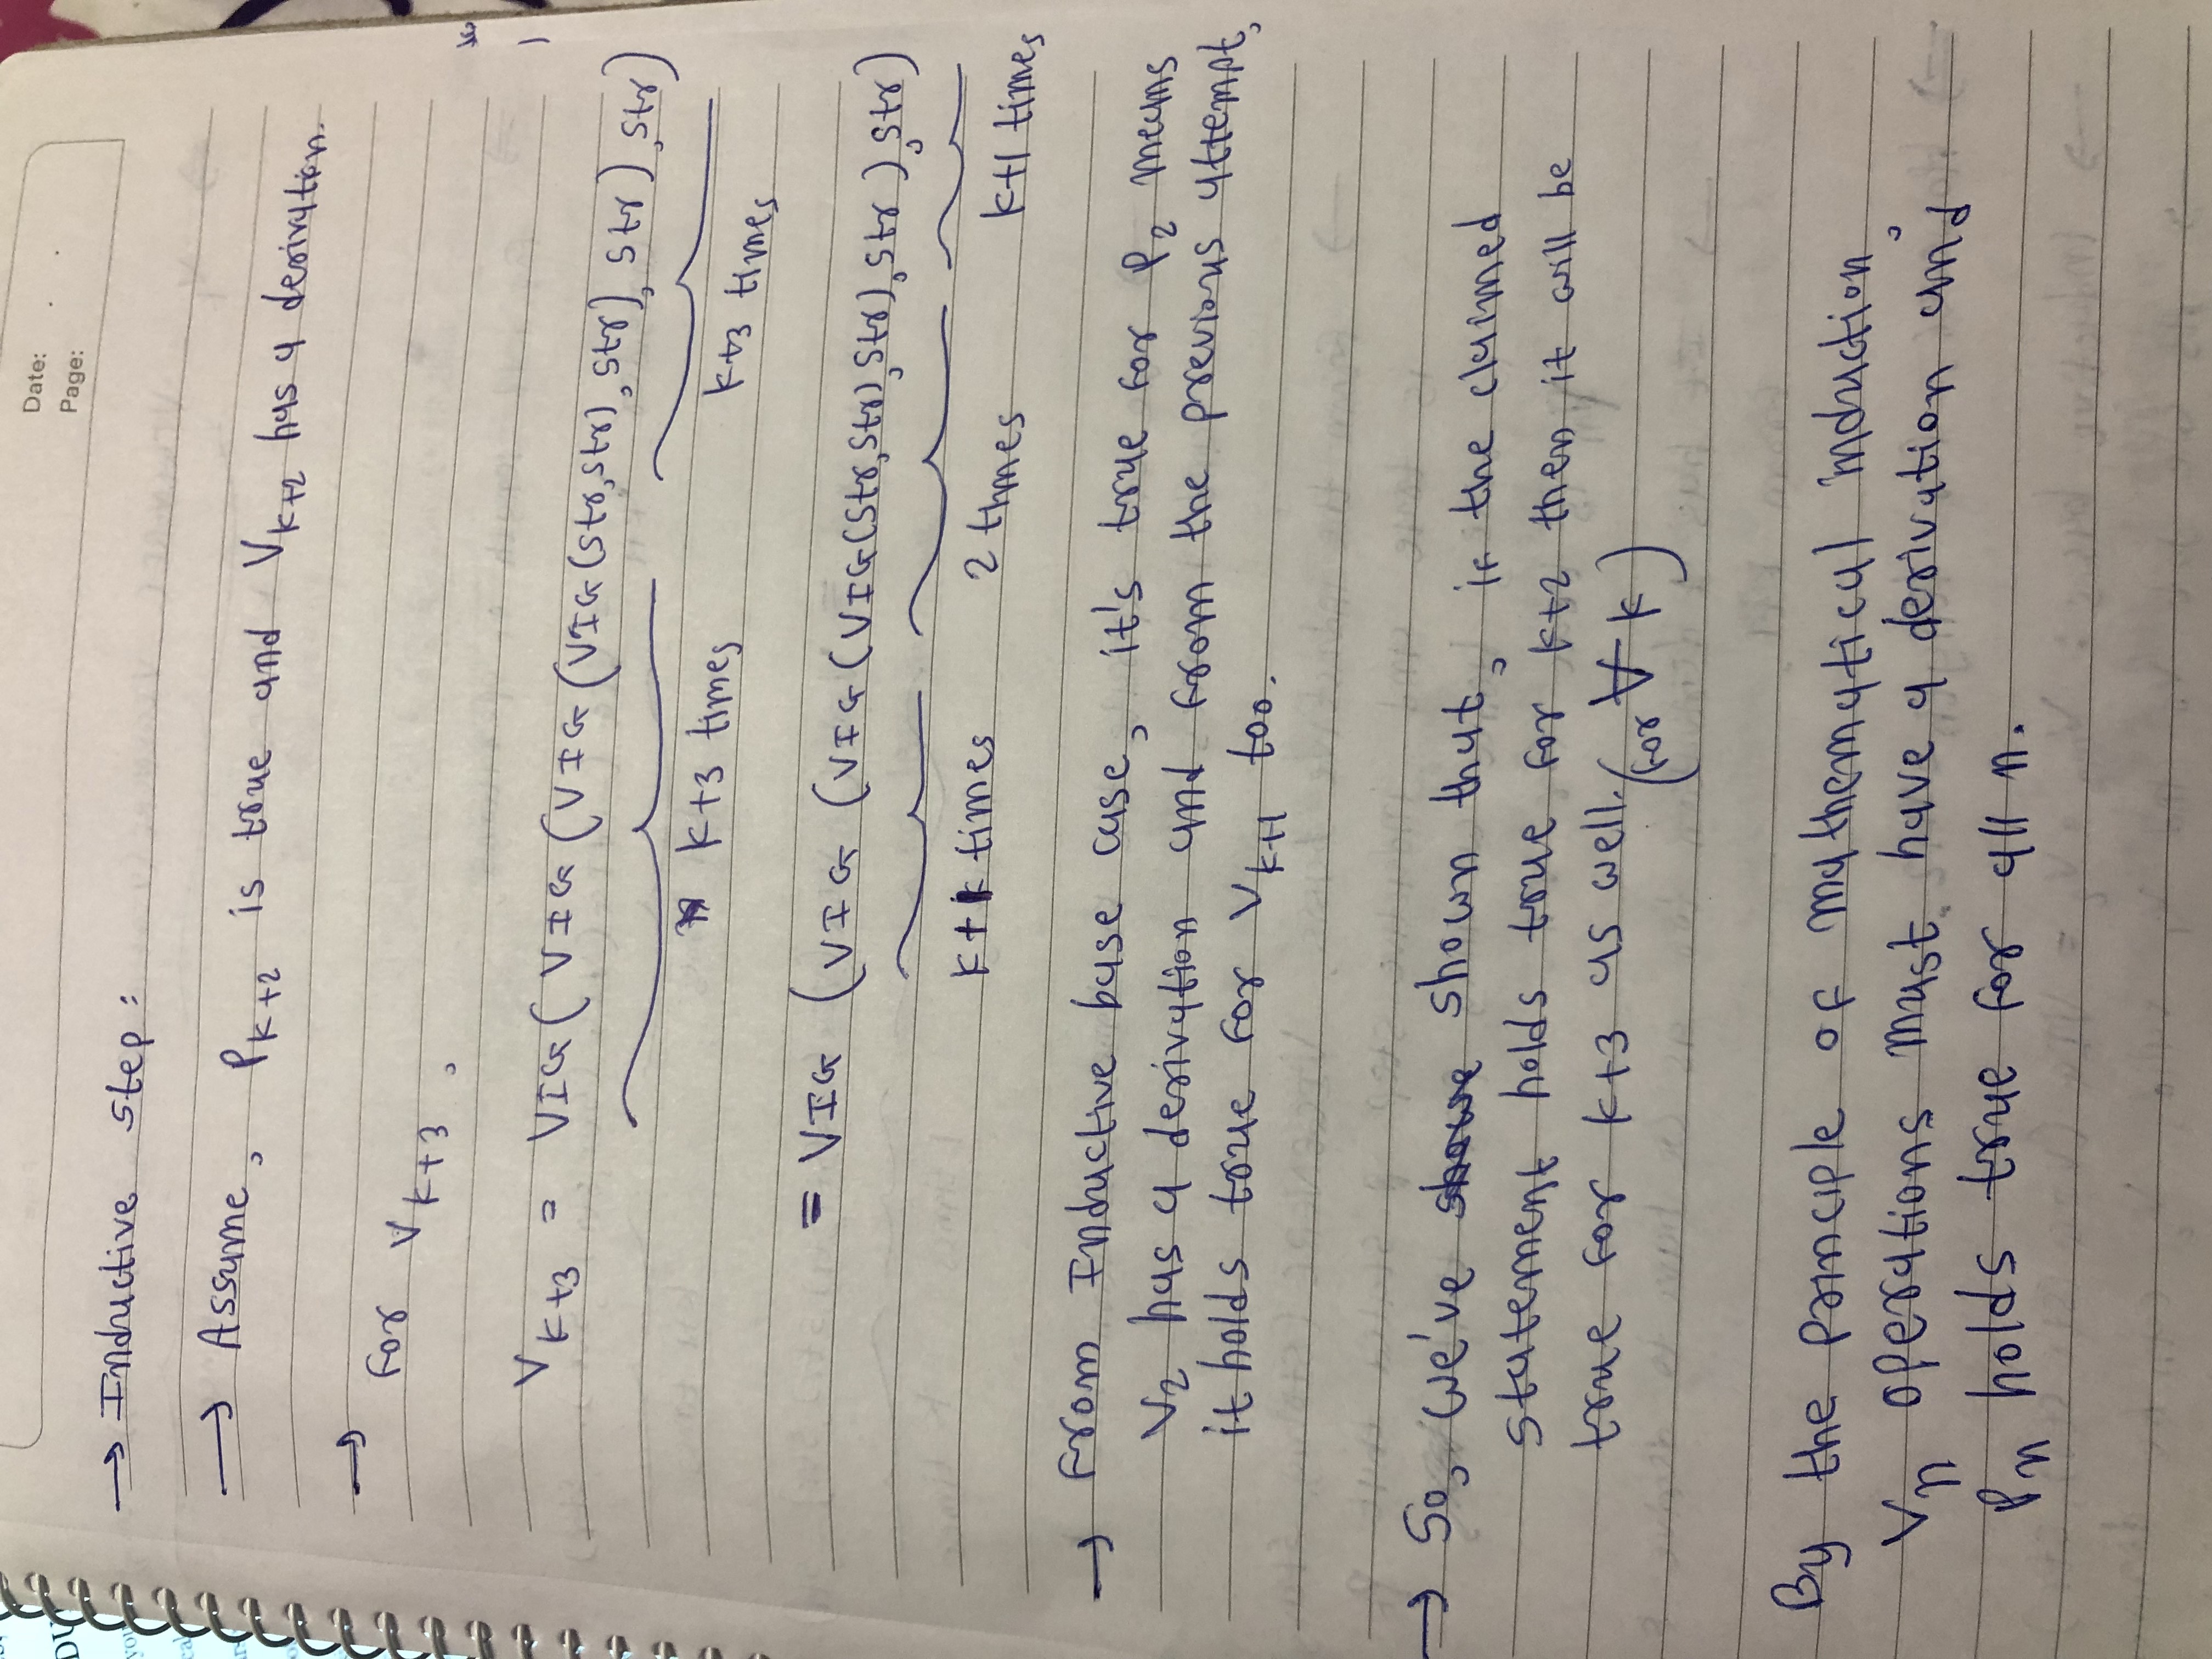 Date:
Page:
→ Inductive step:
→ Assume, P_{k+2} is true and V_{k+2} has a derivation.
→ For V_{k+3},
V_{k+3} = VIG(VIG(VIG(VIG(str,str),str),str),str)
k+3 times k+3 times
= VIG (VIG (VIG(VIG(str,str),str),str),str)
k+1 times 2 times k+1 times
→ From Inductive base case, it's true for P_2 means
V_2 has a derivation and from the previous attempt,
it holds true for V_{k+1} too.
→ So, we've shown that, if the claimed
statement holds true for k+2 then it will be
true for k+3 as well. (for ∀ k)
By the principle of mathematical induction,
V_n operations must have a derivation and
P_n holds true for all n.